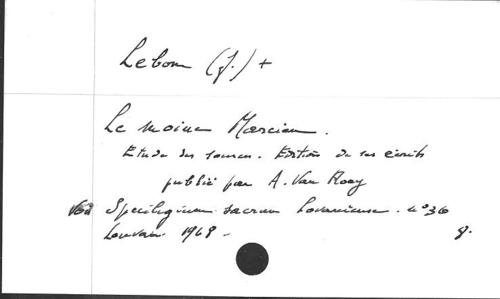 Lebon (J.) +
Le moine Marcien.
Etude des sources. Edition de ses écrits
publié par A. Van Roey
Spicilegium sacrum Lovaniense. n° 36
Louvain 1968 -